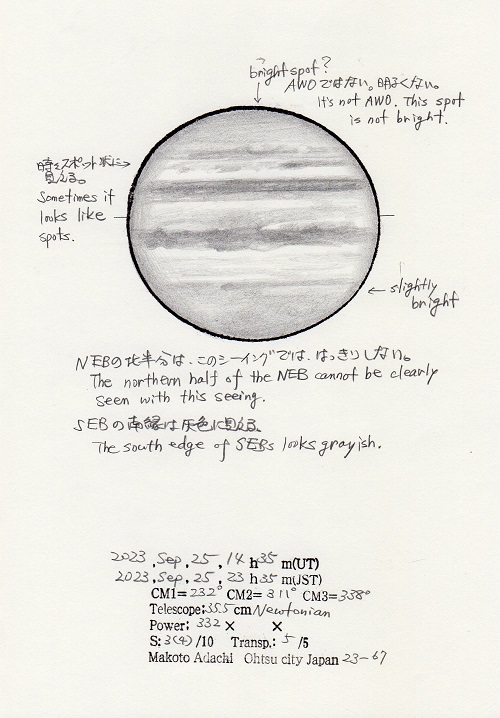 bright spot?
AWOではない。明るくない。
It's not AWO. This spot
is not bright.
時々スポット状に
見える。
Sometimes it
looks like
spots.
slightly
bright
NEBの北半分は、このシーイングでは、はっきりしない。
The northern half of the NEB cannot be clearly
seen with this seeing.
SEBの南縁は灰色に見える。
The south edge of SEBs looks grayish.
2023, Sep, 25, 14 h 35 m(UT)
2023, Sep, 25, 23 h 35 m(JST)
CM1=232° CM2=311° CM3=338°
Telescope: 35.5 cm Newtonian
Power: 332 × ×
S: 3(4) /10 Transp.: 5 /5
Makoto Adachi Ohtsu city Japan 23-67